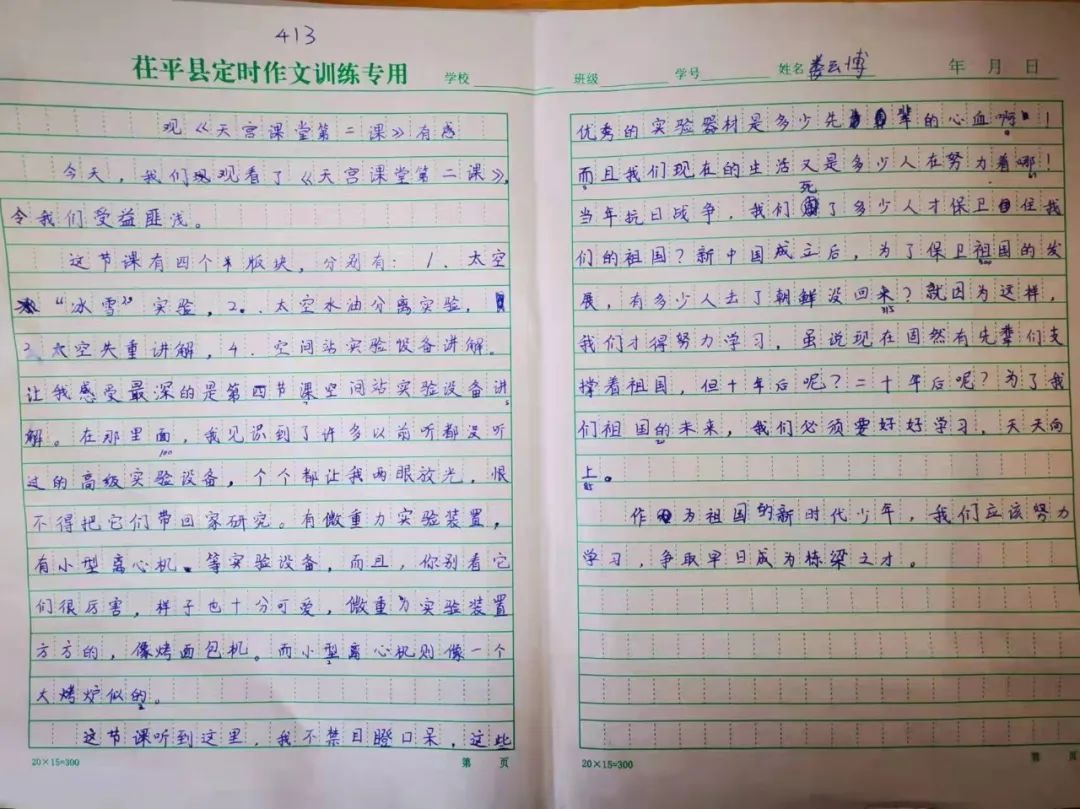 413
茌平县定时作文训练专用 学校
观《天宫课堂第二课》有感
今天，我们观看了《天宫课堂第二课》，
令我们受益匪浅。
这节课有四个版块，分别有：1．太空
“冰雪”实验，2．太空水油分离实验，
3．太空失重讲解，4．空间站实验设备讲解。
让我感受最深的是第四节课空间站实验设备讲
解。在那里面，我见识到了许多以前听都没听
过的高级实验设备，个个都让我两眼放光，恨
不得把它们带回家研究。有微重力实验装置，
有小型离心机．等实验设备，而且，你别看它
们很厉害，样子也十分可爱，微重力实验装置
方方的，像烤面包机。而小型离心机则像一个
大烤炉似的。
这节课听到这里，我不禁目瞪口呆，这些
20×15=300 第 页
班级 学号 姓名 娄云博 年 月 日
优秀的实验器材是多少先辈的心血啊！
而且我们现在的生活又是多少人在努力着哪！
当年抗日战争，我们死了多少人才保卫住我
们的祖国？新中国成立后，为了保卫祖国的发
展，有多少人去了朝鲜没回来？就因为这样，
我们才得努力学习，虽说现在固然有先辈们支
撑着祖国，但十年后呢？二十年后呢？为了我
们祖国的未来，我们必须要好好学习，天天向
上。
作为祖国的新时代少年，我们应该努力
学习，争取早日成为栋梁之才。
20×15=300 第 页